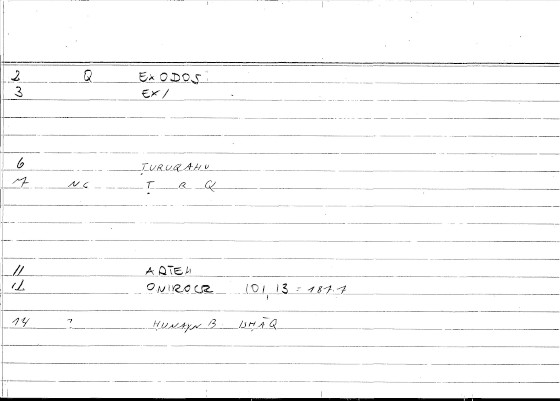 2 Q EXODOS
3 EX/
6 ṬURUQAHU
7 NC Ṭ R Q
11 ARTEM
12 ONIROCR 101,13 = 187.7
14 ? ḤUNAYN B ISḤĀQ